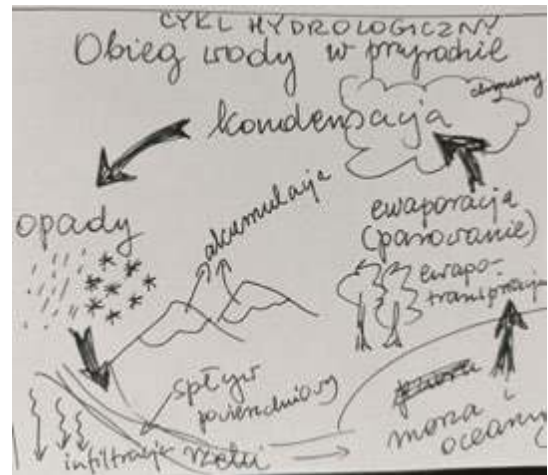 CYKL HYDROLOGICZNY
Obieg wody w przyrodzie
chmury
kondensacja
akumulacja
opady
ewaporacja
(parowanie)
ewapo-
transpiracja
spływ
powierzchniowy
infiltracja
rzeki
morza i
oceany